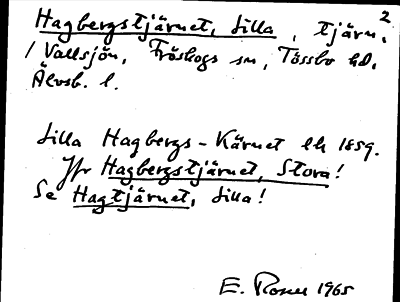 2
Hagbergstjärnet, Lilla, tjärn,
/ Vallsjön, Fröskogs sn, Tössbo hd,
Älvsb. l.
Lilla Hagbergs-Kärnet lk 1859.
Jfr Hagbergstjärnet, Stora!
Se Hagtjärnet, Lilla!
E. Rosén 1965